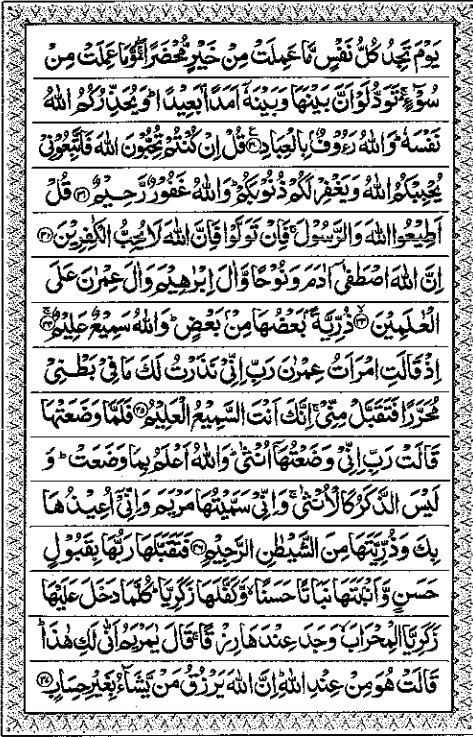 يَوْمَ تَجِدُ كُلُّ نَفْسٍ مَّا عَمِلَتْ مِنْ خَيْرٍ مُّحْضَرًا ۛۖ وَّمَا عَمِلَتْ مِنْ
سُوْٓءٍ ۛۚ تَوَدُّ لَوْ اَنَّ بَيْنَهَا وَبَيْنَهٗۤ اَمَدًۢا بَعِيْدًا ؕ وَيُحَذِّرُكُمُ اللّٰهُ
نَفْسَهٗ ؕ وَاللّٰهُ رَءُوْفٌۢ بِالْعِبَادِ ﴿۳۰﴾ قُلْ اِنْ كُنْتُمْ تُحِبُّوْنَ اللّٰهَ فَاتَّبِعُوْنِيْ
يُحْبِبْكُمُ اللّٰهُ وَيَغْفِرْ لَكُمْ ذُنُوْبَكُمْ ؕ وَاللّٰهُ غَفُوْرٌ رَّحِيْمٌ ﴿۳۱﴾ قُلْ
اَطِيْعُوا اللّٰهَ وَالرَّسُوْلَ ۚ فَاِنْ تَوَلَّوْا فَاِنَّ اللّٰهَ لَا يُحِبُّ الْكٰفِرِيْنَ ﴿۳۲﴾
اِنَّ اللّٰهَ اصْطَفٰۤى اٰدَمَ وَنُوْحًا وَّاٰلَ اِبْرٰهِيْمَ وَاٰلَ عِمْرٰنَ عَلَى
الْعٰلَمِيْنَ ﴿۳۳﴾ ذُرِّيَّةًۢ بَعْضُهَا مِنْۢ بَعْضٍ ؕ وَاللّٰهُ سَمِيْعٌ عَلِيْمٌ ﴿۳۴﴾
اِذْ قَالَتِ امْرَاَتُ عِمْرٰنَ رَبِّ اِنِّيْ نَذَرْتُ لَكَ مَا فِيْ بَطْنِيْ
مُحَرَّرًا فَتَقَبَّلْ مِنِّيْ ۚ اِنَّكَ اَنْتَ السَّمِيْعُ الْعَلِيْمُ ﴿۳۵﴾ فَلَمَّا وَضَعَتْهَا
قَالَتْ رَبِّ اِنِّيْ وَضَعْتُهَاۤ اُنْثٰى ؕ وَاللّٰهُ اَعْلَمُ بِمَا وَضَعَتْ ؕ وَ
لَيْسَ الذَّكَرُ كَالْاُنْثٰى ۚ وَاِنِّيْ سَمَّيْتُهَا مَرْيَمَ وَاِنِّيْۤ اُعِيْذُهَا
بِكَ وَذُرِّيَّتَهَا مِنَ الشَّيْطٰنِ الرَّجِيْمِ ﴿۳۶﴾ فَتَقَبَّلَهَا رَبُّهَا بِقَبُوْلٍ
حَسَنٍ وَّاَنْۢبَتَهَا نَبَاتًا حَسَنًا ۙ وَّكَفَّلَهَا زَكَرِيَّا ؕ كُلَّمَا دَخَلَ عَلَيْهَا
زَكَرِيَّا الْمِحْرَابَ ۙ وَجَدَ عِنْدَهَا رِزْقًا ۚ قَالَ يٰمَرْيَمُ اَنّٰى لَكِ هٰذَا ؕ
قَالَتْ هُوَ مِنْ عِنْدِ اللّٰهِ ؕ اِنَّ اللّٰهَ يَرْزُقُ مَنْ يَّشَآءُ بِغَيْرِ حِسَابٍ ﴿۳۷﴾